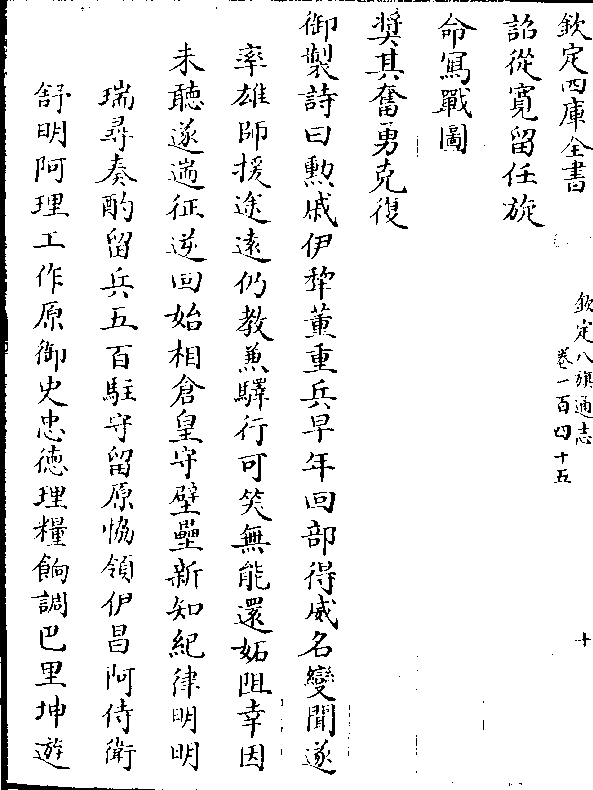 欽定四庫全書
欽定八旗通志
卷一百四十五
十
詔從寬留任旋
命寫戰圖
奬其奮勇克復
御製詩曰勲戚伊犂董重兵早年回部得威名變聞遂
率雄師援途遠仍教兼驛行可笑無能還妬阻幸因
未聽遂遄征逆回始相倉皇守壁壘新知紀律明明
瑞尋奏酌留兵五百駐守留原恊領伊昌阿侍衛
舒明阿理工作原御史忠德理糧餉調巴里坤遊